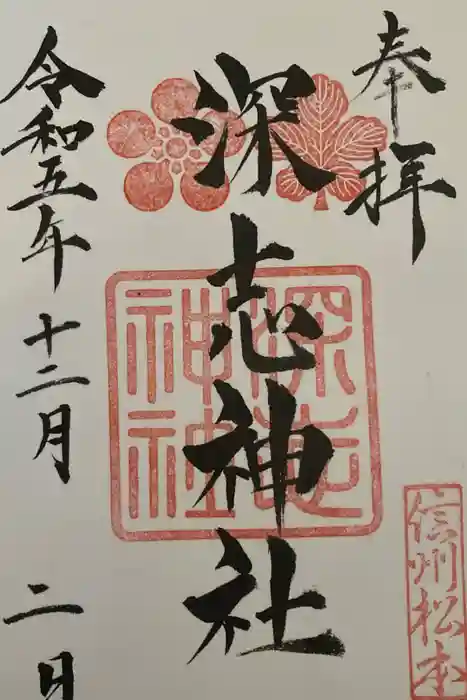 奉拝
深志神社
深志
神社
信州松本
令和五年
十二月
二月